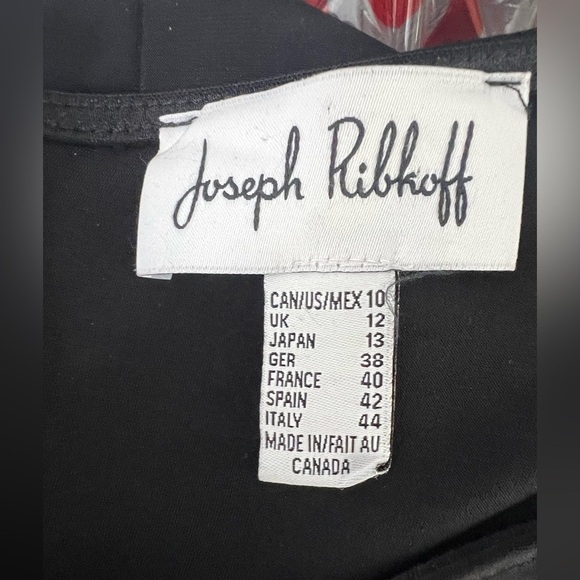 Joseph Ribkoff
CAN/US/MEX 10
UK 12
JAPAN 13
GER 38
FRANCE 40
SPAIN 42
ITALY 44
MADE IN/FAIT AU
CANADA